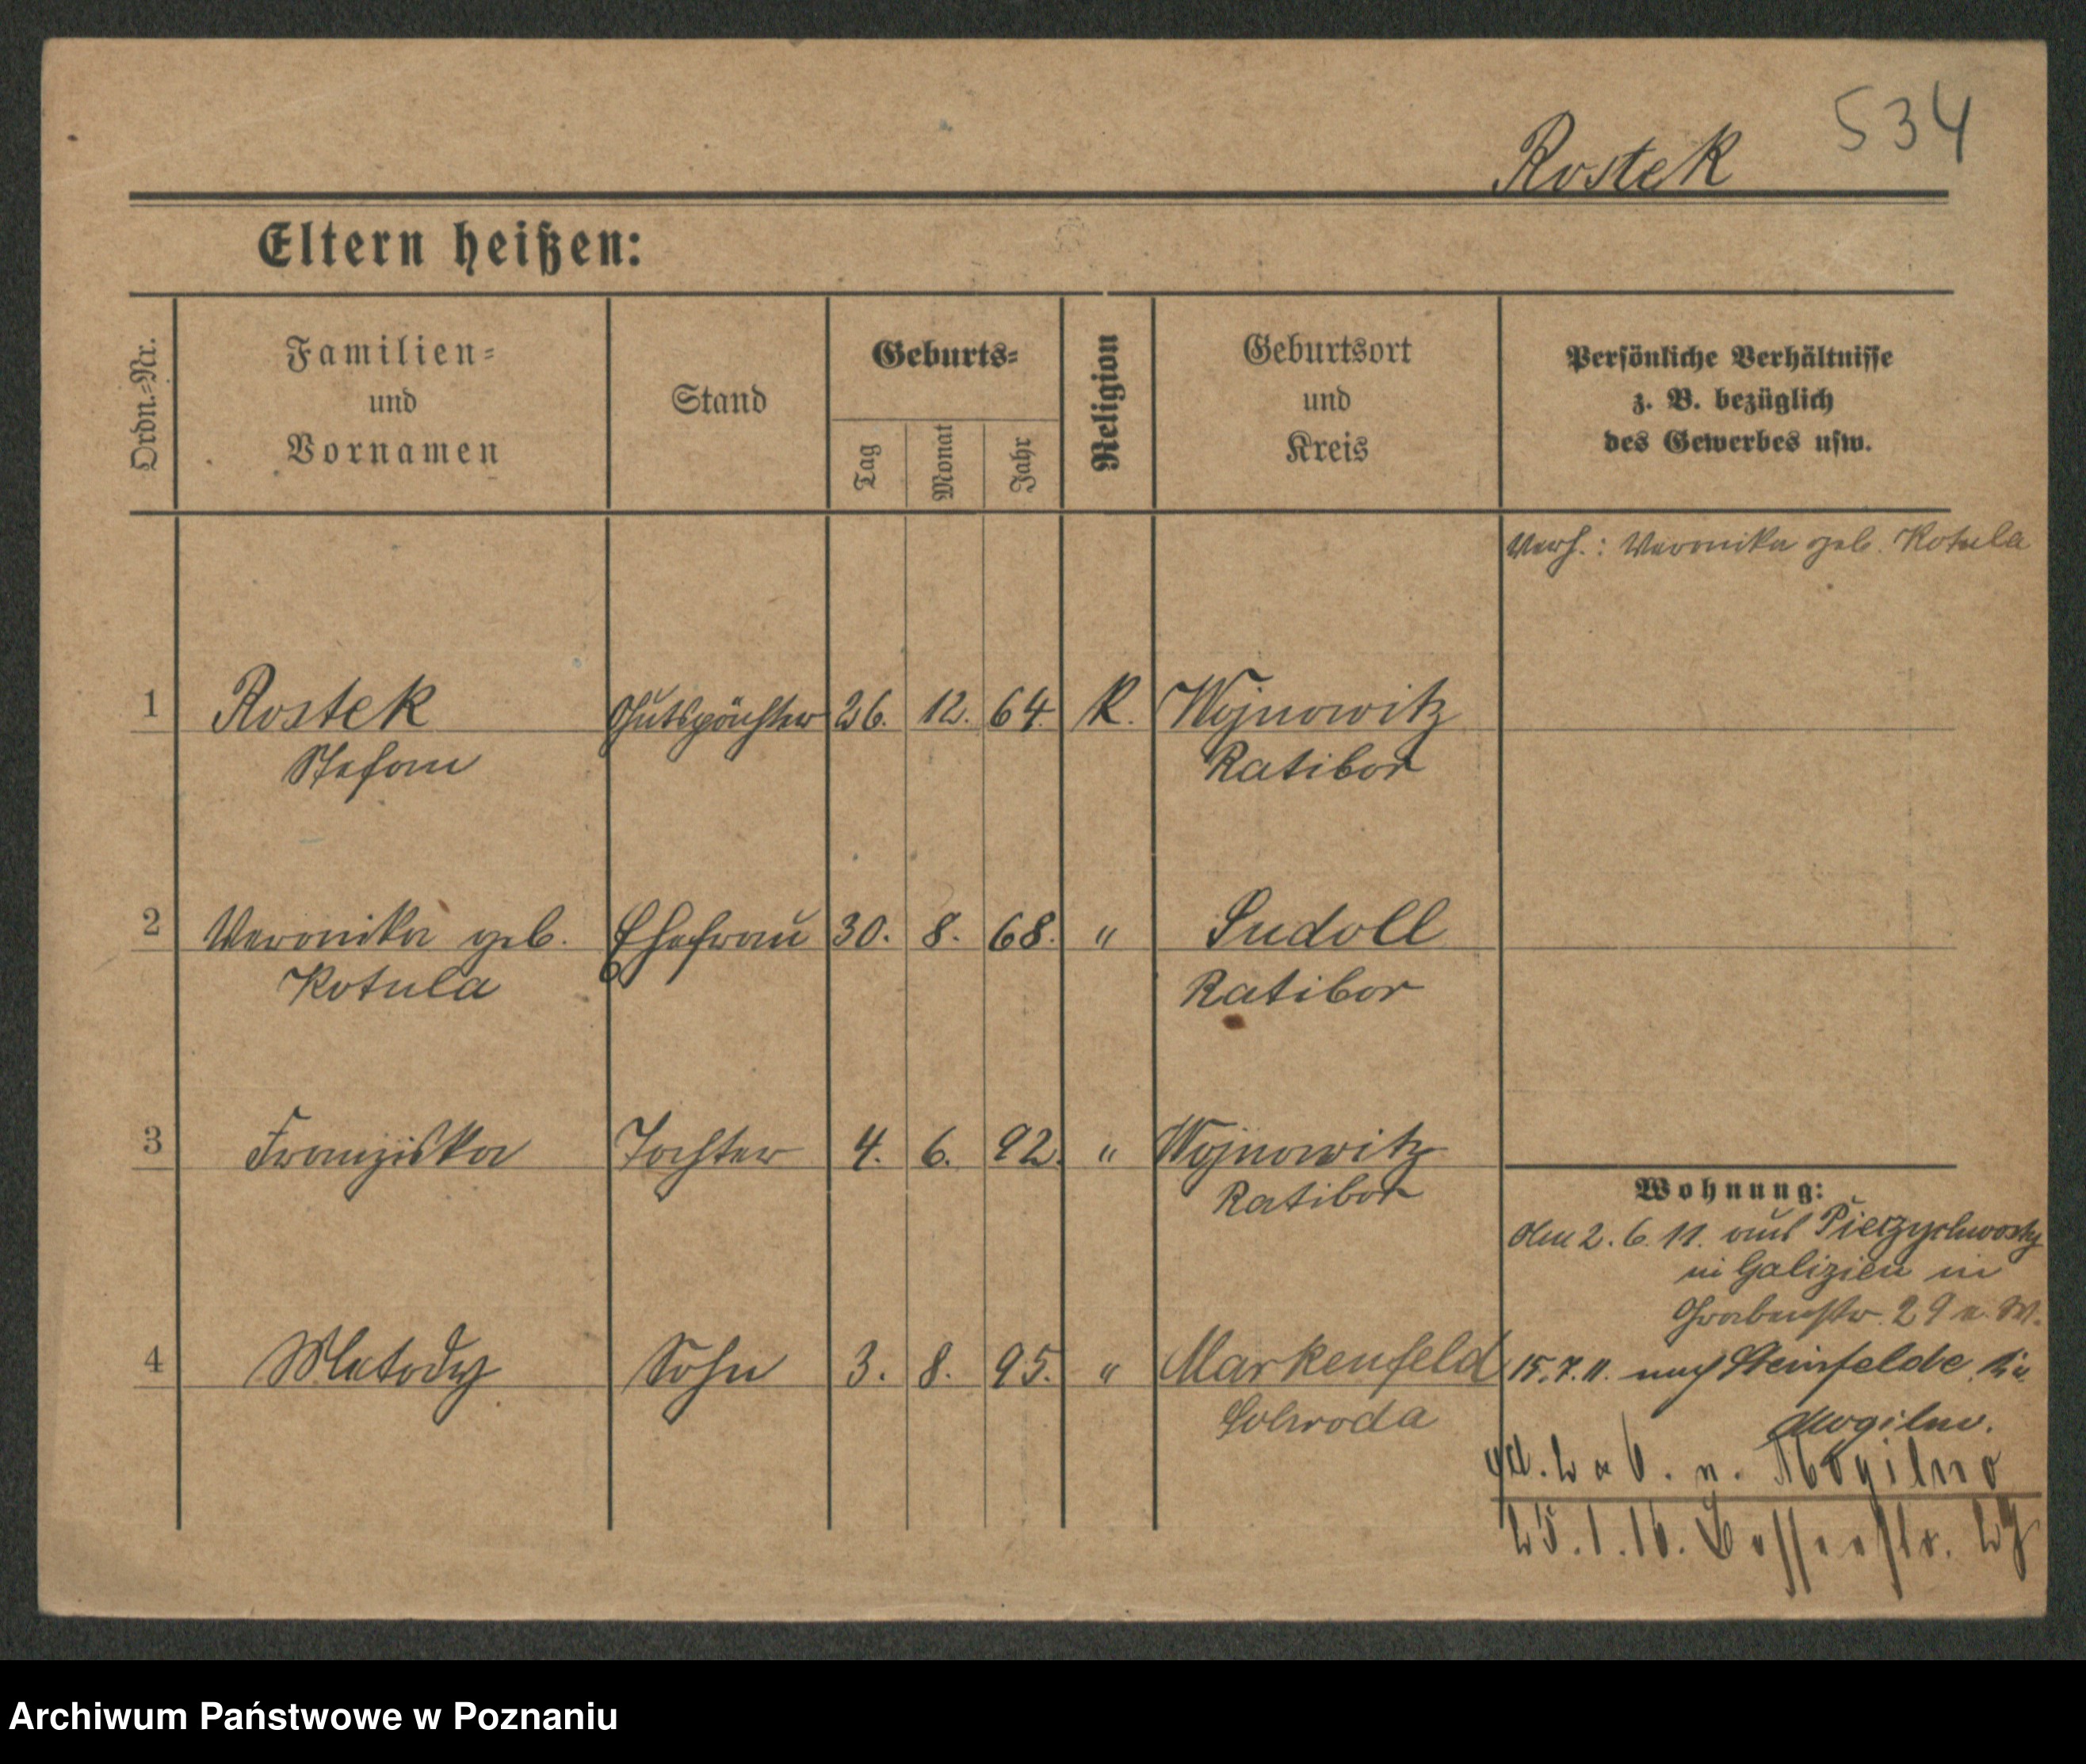 534
Rostek
Eltern heißen:
Ordn.=Nr.
Familien=
und
Vornamen
Stand
Geburts=
Tag
Monat
Jahr
Religion
Geburtsort
und
Kreis
Persönliche Verhältnisse
z. B. bezüglich
des Gewerbes usw.
Verh.: Veronika geb. Kotula
1 Rostek Gutspächter 26. 12. 64. K. Wojnowitz
Stefan Ratibor
2 Veronika geb. Ehefrau 30. 8. 68. " Sudoll
Kotula Ratibor
3 Franziska Tochter 4. 6. 92. " Wojnowitz
Ratibor
Wohnung:
2. 6. 11. aus
in Galizien in
Grabenstr. 29 a. W.
4 Metody Sohn 3. 8. 95. " Markenfeld
Schroda
15.7.11. nach Steinfelde
Mogilno.
n. Mogilno
25.1.16.
Archiwum Państwowe w Poznaniu